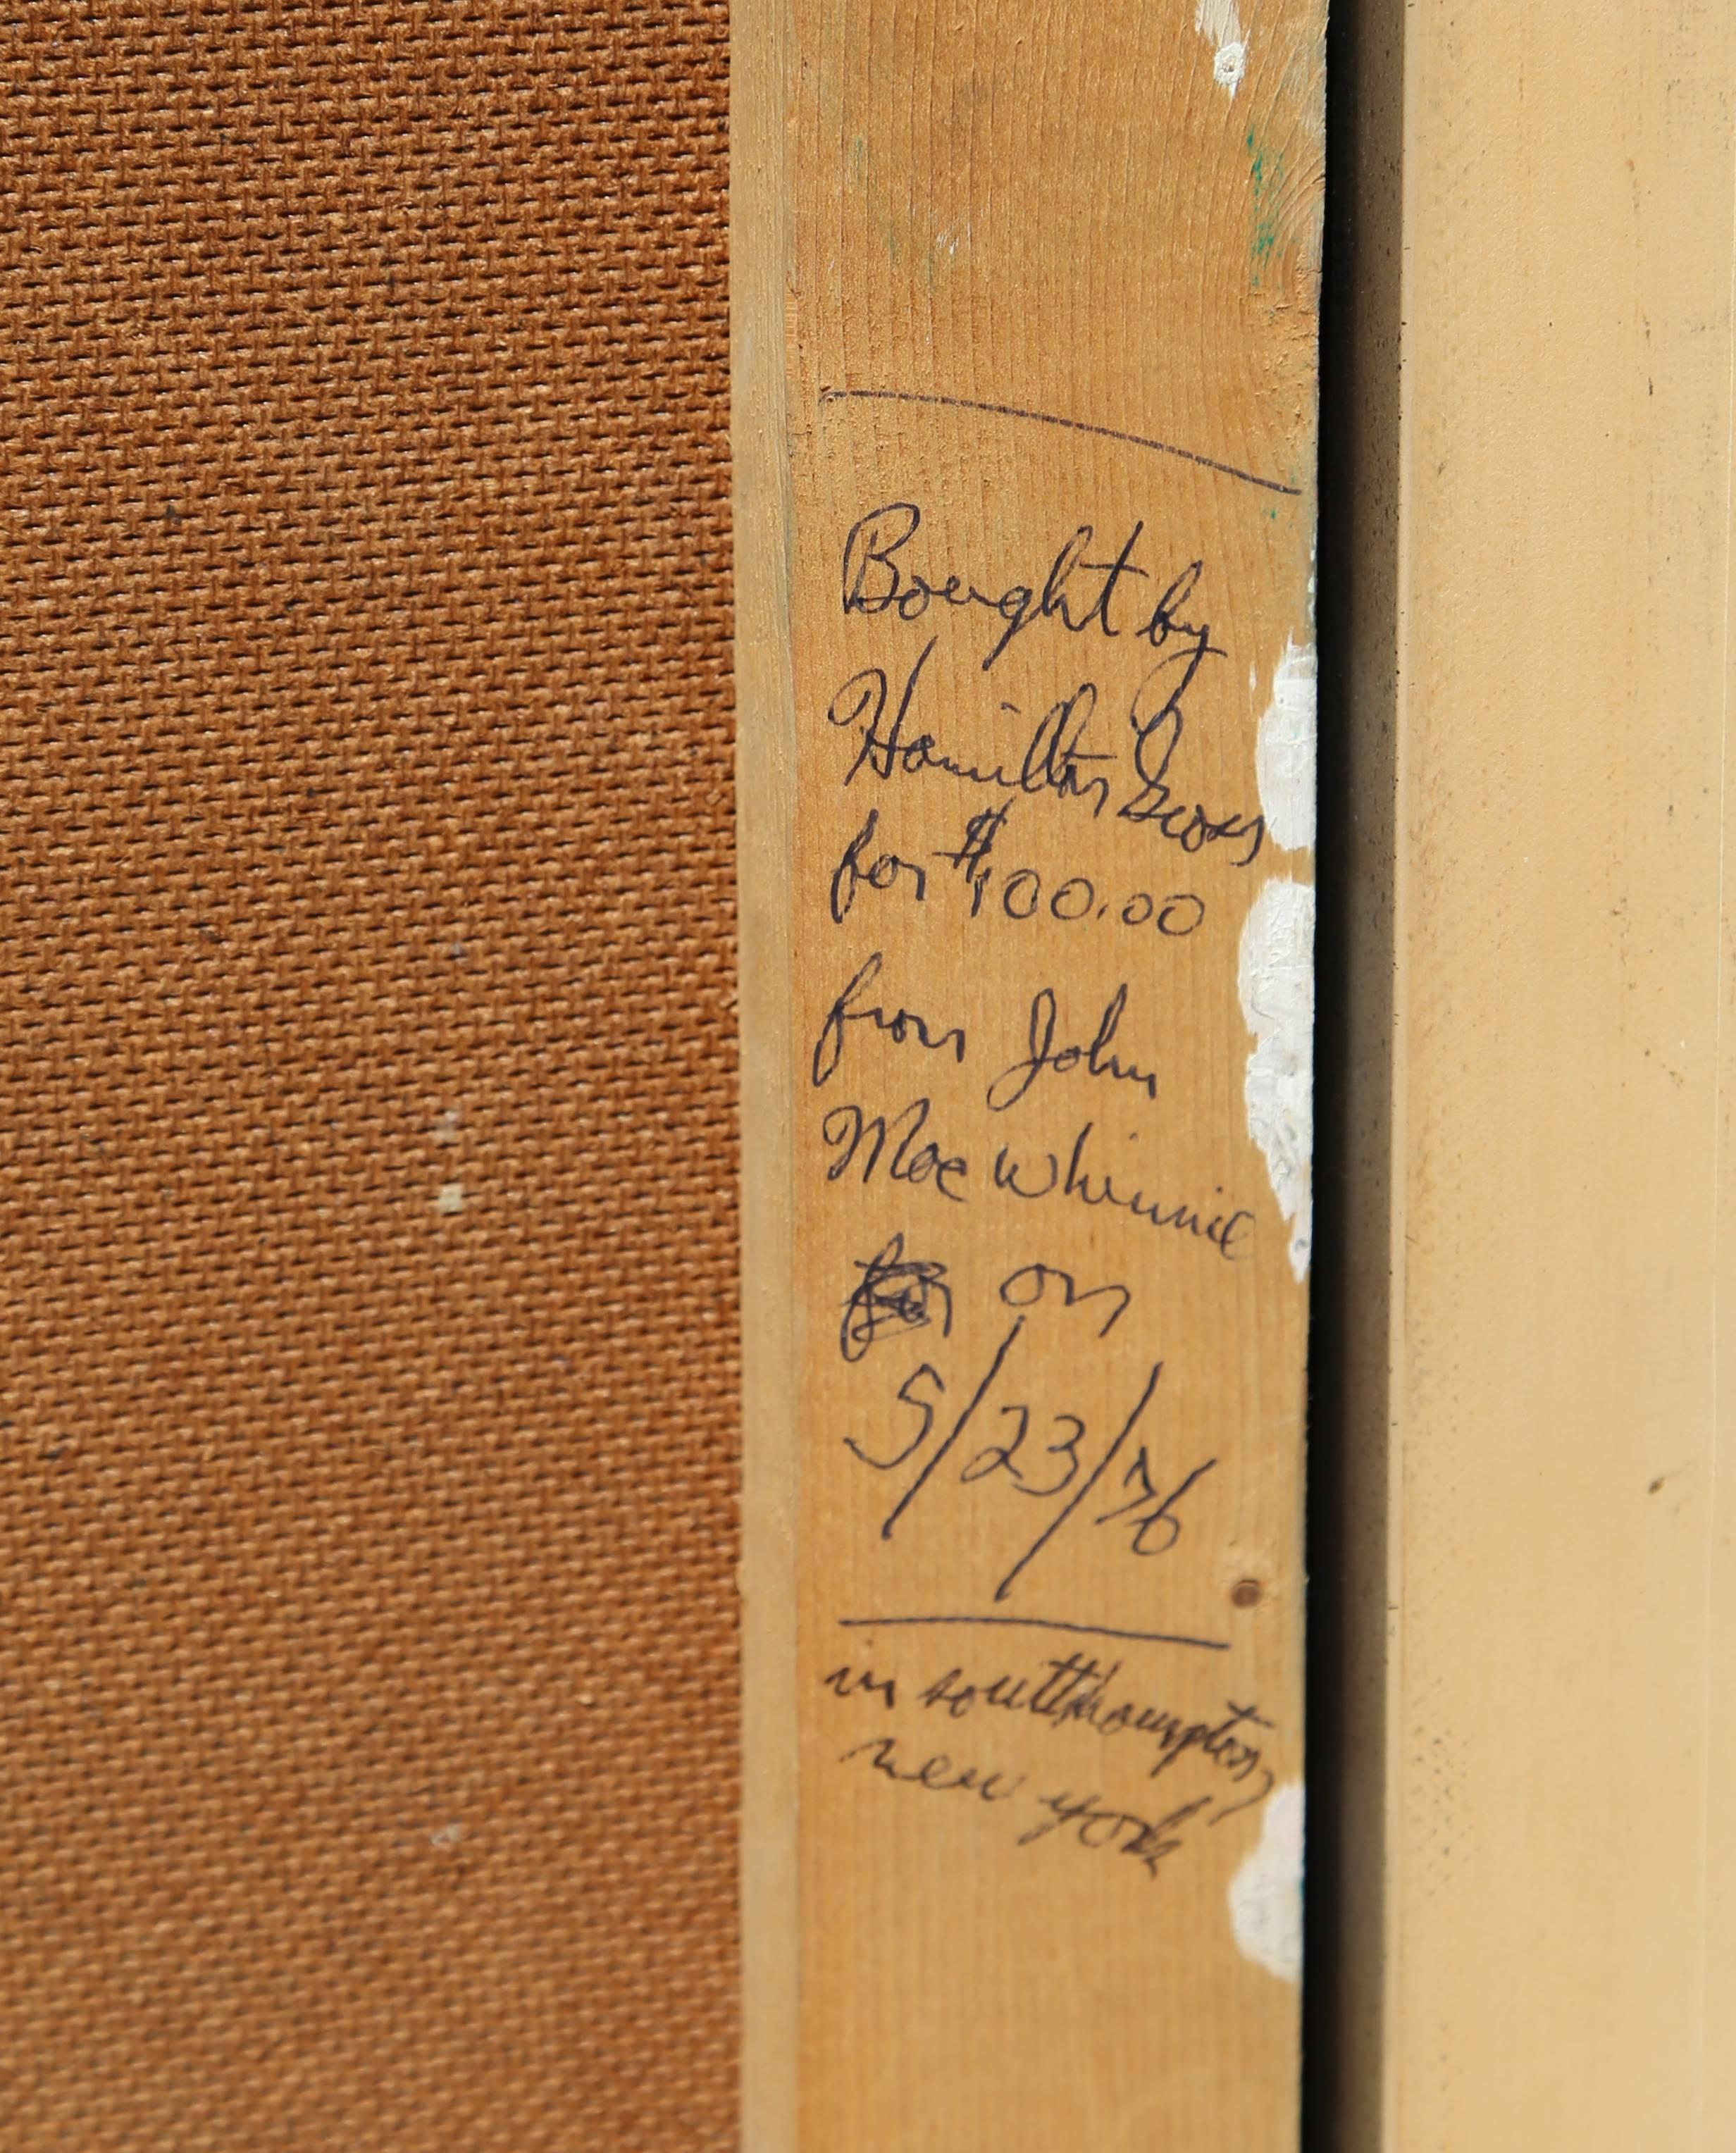 Bought by
Hamilton
for $100.00
from John
MacWhinnie
on
5/23/76
in southhampton,
new york